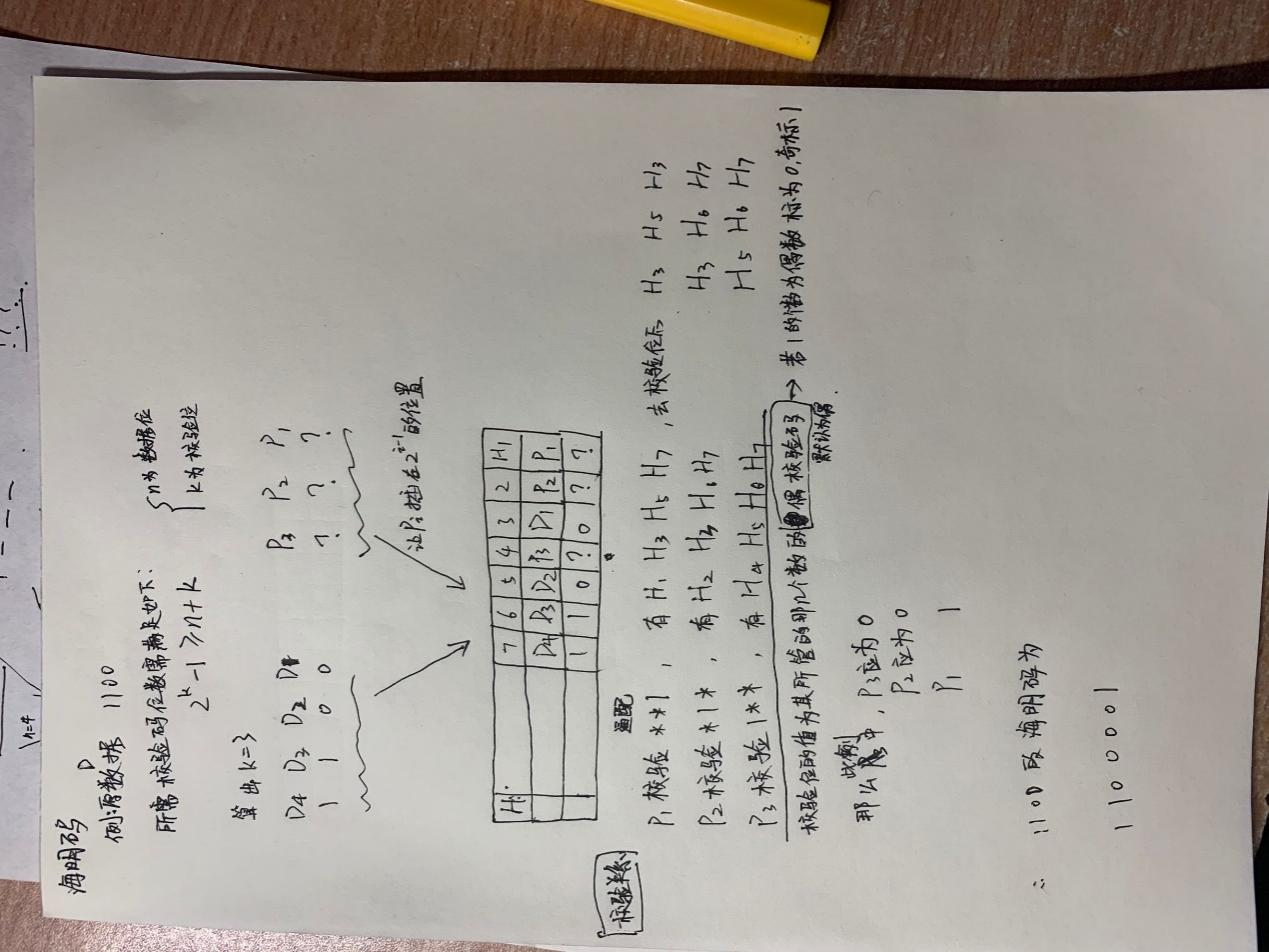 海明码
例:源数据D 1100
所需校验码位数需满足如下:
2^k-1≥n+k {n为数据位
k为校验位
算出k=3
D4 D3 D2 D1 P3 P2 P1
1 1 0 0 ? ? ?
让Pi插在2^i-1的位置
H. 7 6 5 4 3 2 H1
D4 D3 D2 P3 D1 P2 P1
1 1 0 ? 0 ? ?
校验关系 适配
P1校验**1, 有H1 H3 H5 H7, 去校验位后 H3 H5 H3
P2校验*1*, 有H2 H3 H6 H7 H3 H6 H7
P3校验1**, 有H4 H5 H6 H7 H5 H6 H7
校验位的值为其所管的那几个数的偶校验码 → 若1的個数为偶数标为0,奇标1
默认为偶
那么此例中, P3应为0
P2应为0
P1 1
∴ 1100的海明码为
1100001